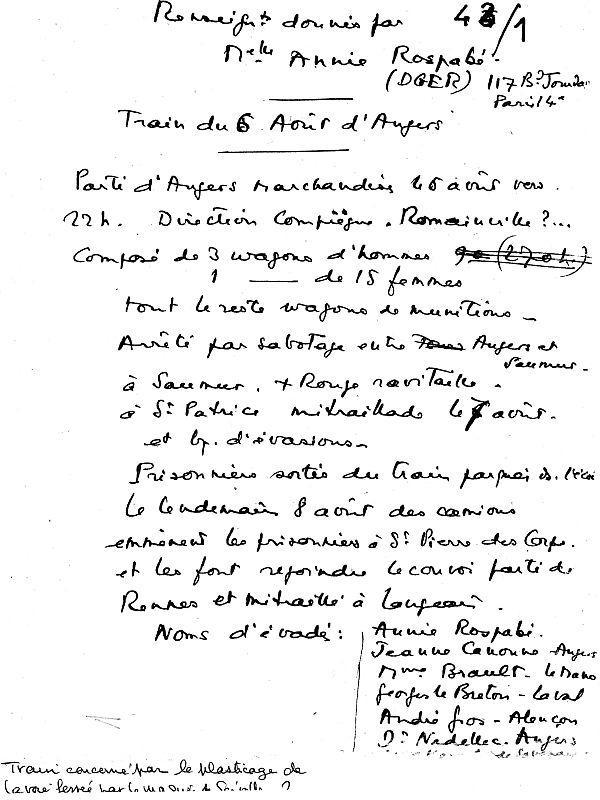 Renseignts donnés par 43/1
Melle Annie Rospabé.
(DGER) 117 Bd Jourdan
Paris 14e
Train du 6 Août d'Angers
Parti d'Angers Marchandises le 6 août vers
22h. Direction Compiègne, Romainville ?...
Composé de 3 wagons d'hommes
1 — de 15 femmes
tout le reste wagons de munitions —
Arrêté par sabotage entre Angers et
Saumur.
à Saumur, + Rouge ravitaille.
à St Patrice mitraillade le 7 août.
et bp. d'évasions —
Prisonniers sortis du train parqués ds. l'école
Le lendemain 8 août des camions
emmènent les prisonniers à St Pierre des Corps.
et les font rejoindre le convoi parti de
Rennes et mitraillé à Langeais.
Noms d'évadés :
Annie Rospabé.
Jeanne Canonne - Angers
Mme Brault - le Mans
Georges le Breton - Laval
André Gros - Alençon
Dr Nedellec. Angers
Train concerné par le plasticage de
la voie ferrée par le maquis de ?